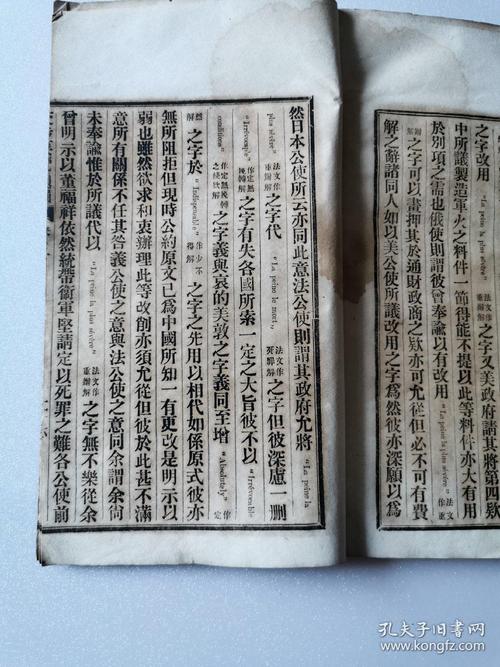 之字改用 "La peine la plus sévère" 法文作重懲解 之字又美政府請其將第四欵
中所議製造軍火之料件一節得能不提以此等料件亦大有用
於別項之需也俄使則謂彼曾奉諭以有改用 "La peine la plus sévère" 法文作重
懲解 之字可以書押其於通財政商之欵亦可允從但必不可有費
解之辭諸同人如以美公使所議改用之字為然彼亦深願以為
然日本公使所云亦同此意法公使則謂其政府允將 "La peine la
plus sévère" 法文作重懲解 之字代 "La peine le mort" 法文作死罪解 之字但彼深慮一刪
"Irrévocable" 作定無挽轉解 之字有失各國所索一定之大旨彼不以 "Irrévocable
conditions" 作定無挽轉之條欵解 之字義與哀的美敦之字義同至增 "Absolutely" 作定
然解 之字於 "Indispensable" 作少不得解 之字之先用以相代如係原式彼亦
無所阻拒但現時公約原文已為中國所知一有更改是明示以
弱也雖然欲求和衷辦理此等改創亦須允從但彼於此甚不滿
意所有關係不任其咎義公使之意與法公使之意同余謂余尙
未奉諭惟於所議代以 "La peine la plus sévère" 法文作重懲解 之字無不樂從余
曾明示以董福祥依然統帶衞軍堅請定以死罪之難各公使前
孔夫子旧书网
kongfz.com